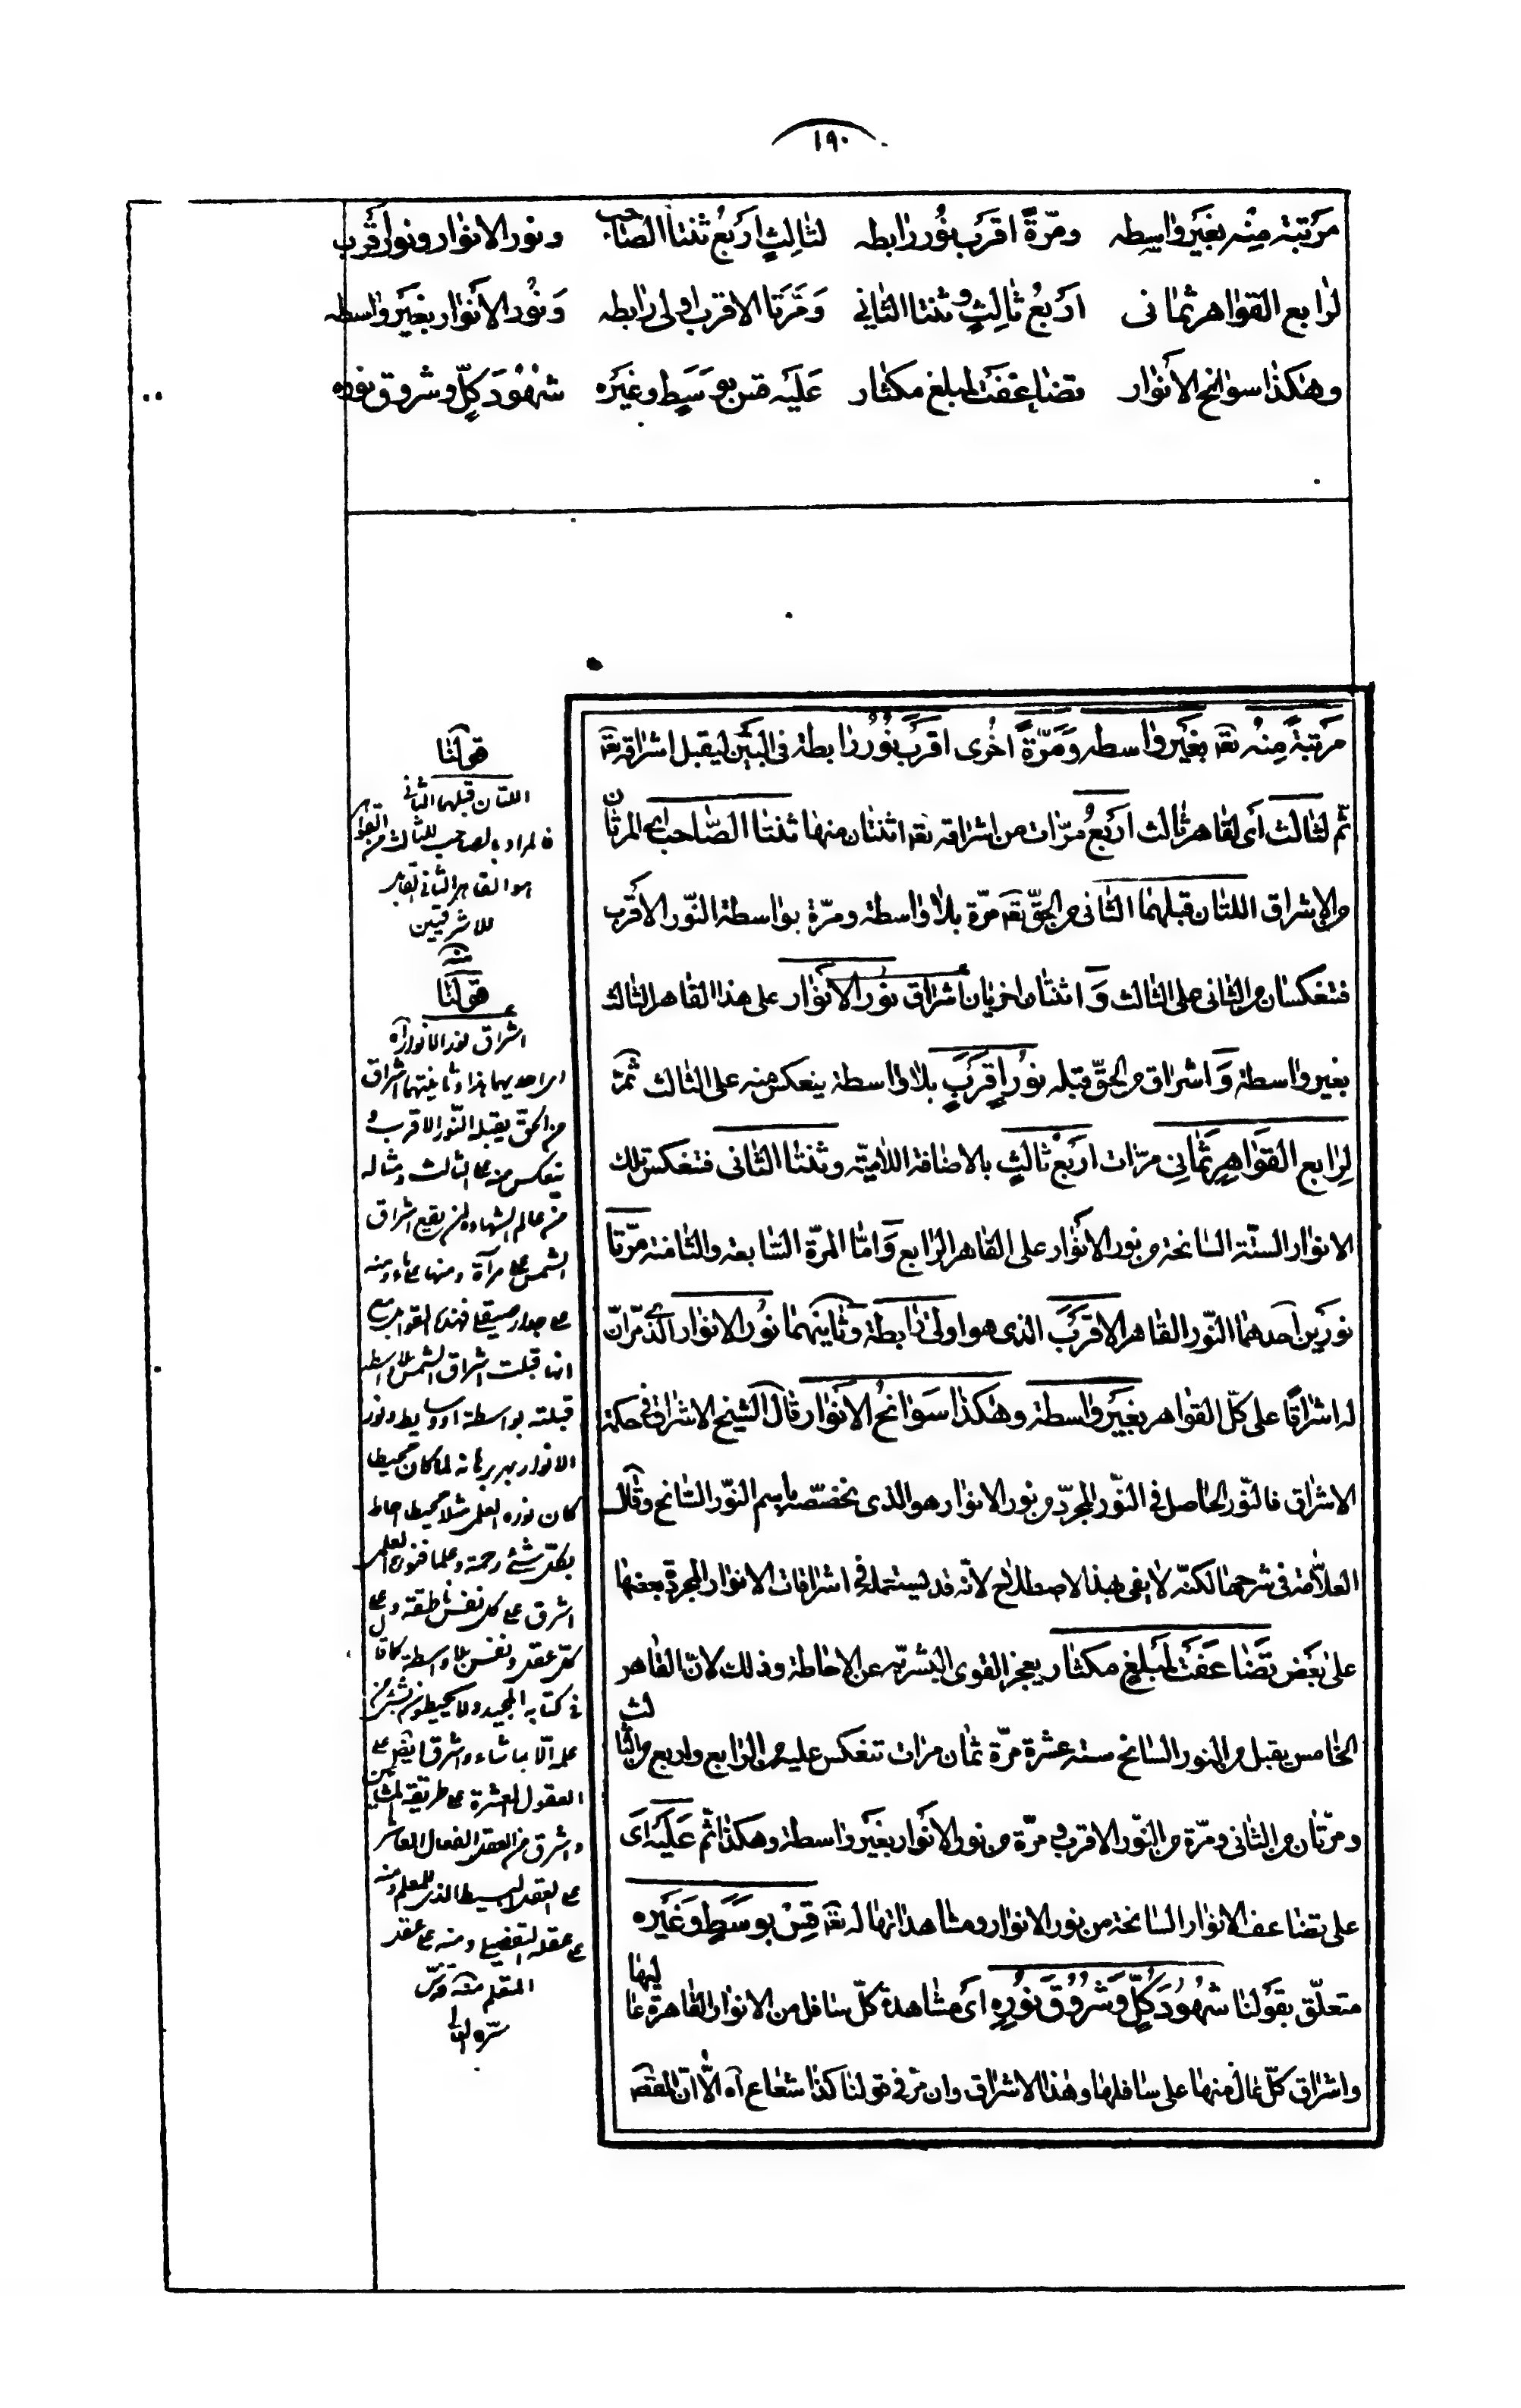 ١٩٠
مَرتبة مِنْه بغَير واسِطه ومرّةً اقرَب نُور رابطه لثالِثٍ اربَعُ ثنتا الصّاحب ونور الانوار ونوار قَرب
لرابع القواهر ثمانى اربَعُ ثالِثٍ و ثنتا الثاني وَمَرّتا الاقرب اولى رابطه وَنُور الأنوار بغير واسطه
وهكذا سوانح الأنوار تضاعَفَت لمبلغ مكثار عَلَيه قس بوَسَطٍ وغَيره شهُودَ كلّ وشروق نوره
مَرتبةً مِنْهُ تعه بغَير واسطه وَمَرّةً اخْرى اقرَبُ نُورُ رابطة فى البَين ليقبل اشراقه تعه
ثمّ لثالث أى لقاهر ثالث اربَعُ مرّات من اشراقه تعه اثنتان منها ثنتا الصّاحب اى المرتان
من الاشراق اللتان قبلهما الثانى من الحقّ تعه مرّة بلا واسطة ومرّة بواسطة النّور الاقرب
فتنعكسان من الثانى على الثالث وَ اثنتان اخريان اشراق نُور الأنوار على هذا القاهر الثالث
بغير واسطة وَ اشراق من الحقّ قبله نورُ اقرَبٍ بلا واسطة ينعكس منه على الثالث ثمّ
لِرابع القَواهِر ثمانِى مرّات اربَع ثالثٍ بالاضافة اللاميّه وثنتا الثانى فتنعكس تلك
الانوار الستّة السانحة من نور الأنوار على القاهر الرابع وَامّا المرّة السّابعة والثامنة مرّتا
نورَين احدهما النّور القاهر الاقرَب الذى هو اولى رابطة وثانيهما نُور الانوار الذى مرّ انّ
له اشراقًا على كلّ القواهر بغَير واسطة وهكذا سَوانحُ الأنوار قال الشّيخ الاشراق فى حكمة
الاشراق فالنّور الحاصل فى النّور المجرّد من نور الانوار هو الذى نخصّصه باسم النّور السّانح وقال
العلّامة فى شرحها لكنّه لا يفى بهذا الاصطلاح لانّه قد يستعمله فى اشراقات الانوار المجردة بعضها
على بَعض تَضاعَفَت لمَبلغٍ مكثار يعجز القوى البشريّه عن الاحاطة وذلك لانّ القاهر
الخامس يقبل من النور السّانح ستة عشرة مرّة ثمان مرات تنعكس عليه من الرابع واربع من الثالث
ومرّتان من الثانى ومرّة من النّور الاقرب ومرّة من نور الأنوار بغَير واسطة وهكذا ثمّ عَلَيه اى
على تضاعف الانوار السّانحة من نور الانوار ومشاهداتها له تعه قِسْ بوسَطٍ وَغَيره
متعلّق بقَولنا شهُودَ كلٍّ وَشُروقَ نُورِه اى مشاهدة كلّ سافل من الانوار القاهرة عاليها
واشراق كلّ عال منها على سافلها وهذا الاشراق وان مرّ فى قولنا كذا شعاع آه الّا انّ المقصه
قولنا
اللتان قبلهما الثانى
فالمراد بالصاحب للثالث من القواهر
هو القاهر الثانى القابل
للاشرقتين
منه
قولنا
اشراق نور الأنوار آه
احديهما هذا وثانيتهما اشراق
من الحقّ يقبله النّور الاقرب و
ينعكس منه على الثالث ومثاله
من عالم الشهادة ان يقع اشراق
الشمس على مرآة ومنها على ماء ومنه
على جدار صيقلى فهذه القوابل مع
انها قبلت اشراق الشمس بلا واسطه
قبلته بواسطة او وسايط ونور
الانوار بهر برهانه لما كان محيطا
كان نوره العلمى مثلا محيطا احاط
بكلّ شئ رحمة وعلما فنوره العلمى
اشرق على كل نفس ناطقة وعلى
كل عقل ونفس بلا واسطة كما قال
فى كتابه المجيد ولا يحيطون بشئ من
علمه الّا بما شاء واشرق ايضا على
العقول العشرة على طريقة المشائين
واشرق من العقل الفعال العاشر
على العقل البسيط الذى للمعلم ومنه
على عقله التفصيلى ومنه على عقل
المتعلم منه قدس
سره العالى